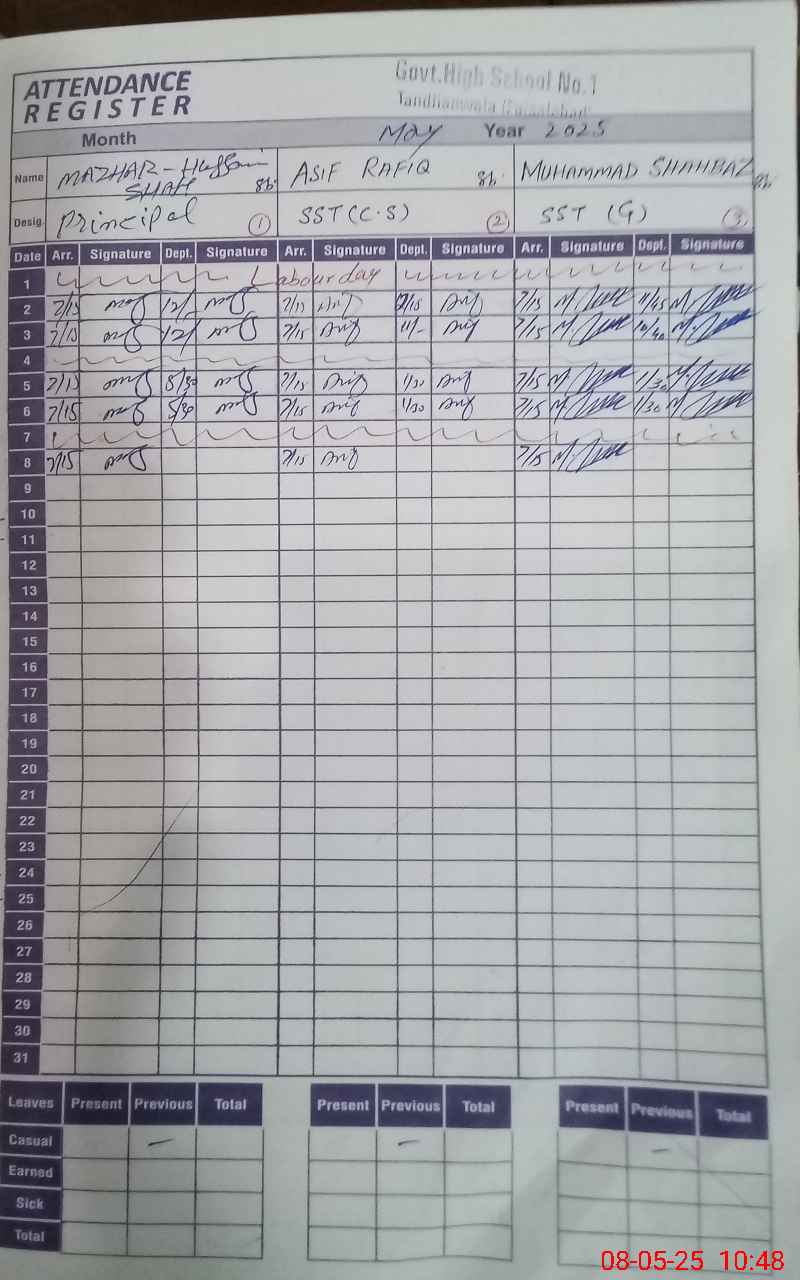 ATTENDANCE
REGISTER
Govt.High School No.1
Tandlianwala
Month May Year 2025
Name MAZHAR-Hussain SHAH ASIF RAFIQ MUHAMMAD SHAHBAZ
Desig. Principal 1 SST(C.S) 2 SST (G) 3
Date Arr. Signature Dept. Signature Arr. Signature Dept. Signature Arr. Signature Dept. Signature
1 Labour day
2 7/15 12/ 7/15 7/15 11/45
3 7/15 12/ 7/15 11/- 7/15
4
5 7/15 7/15 1/30 7/15 1/30
6 7/15 7/15 1/30 7/15 1/30
7
8 7/15 7/15 7/15
9
10
11
12
13
14
15
16
17
18
19
20
21
22
23
24
25
26
27
28
29
30
31
Leaves Present Previous Total Present Previous Total Present Previous Total
Casual – – –
Earned
Sick
Total
08-05-25 10:48